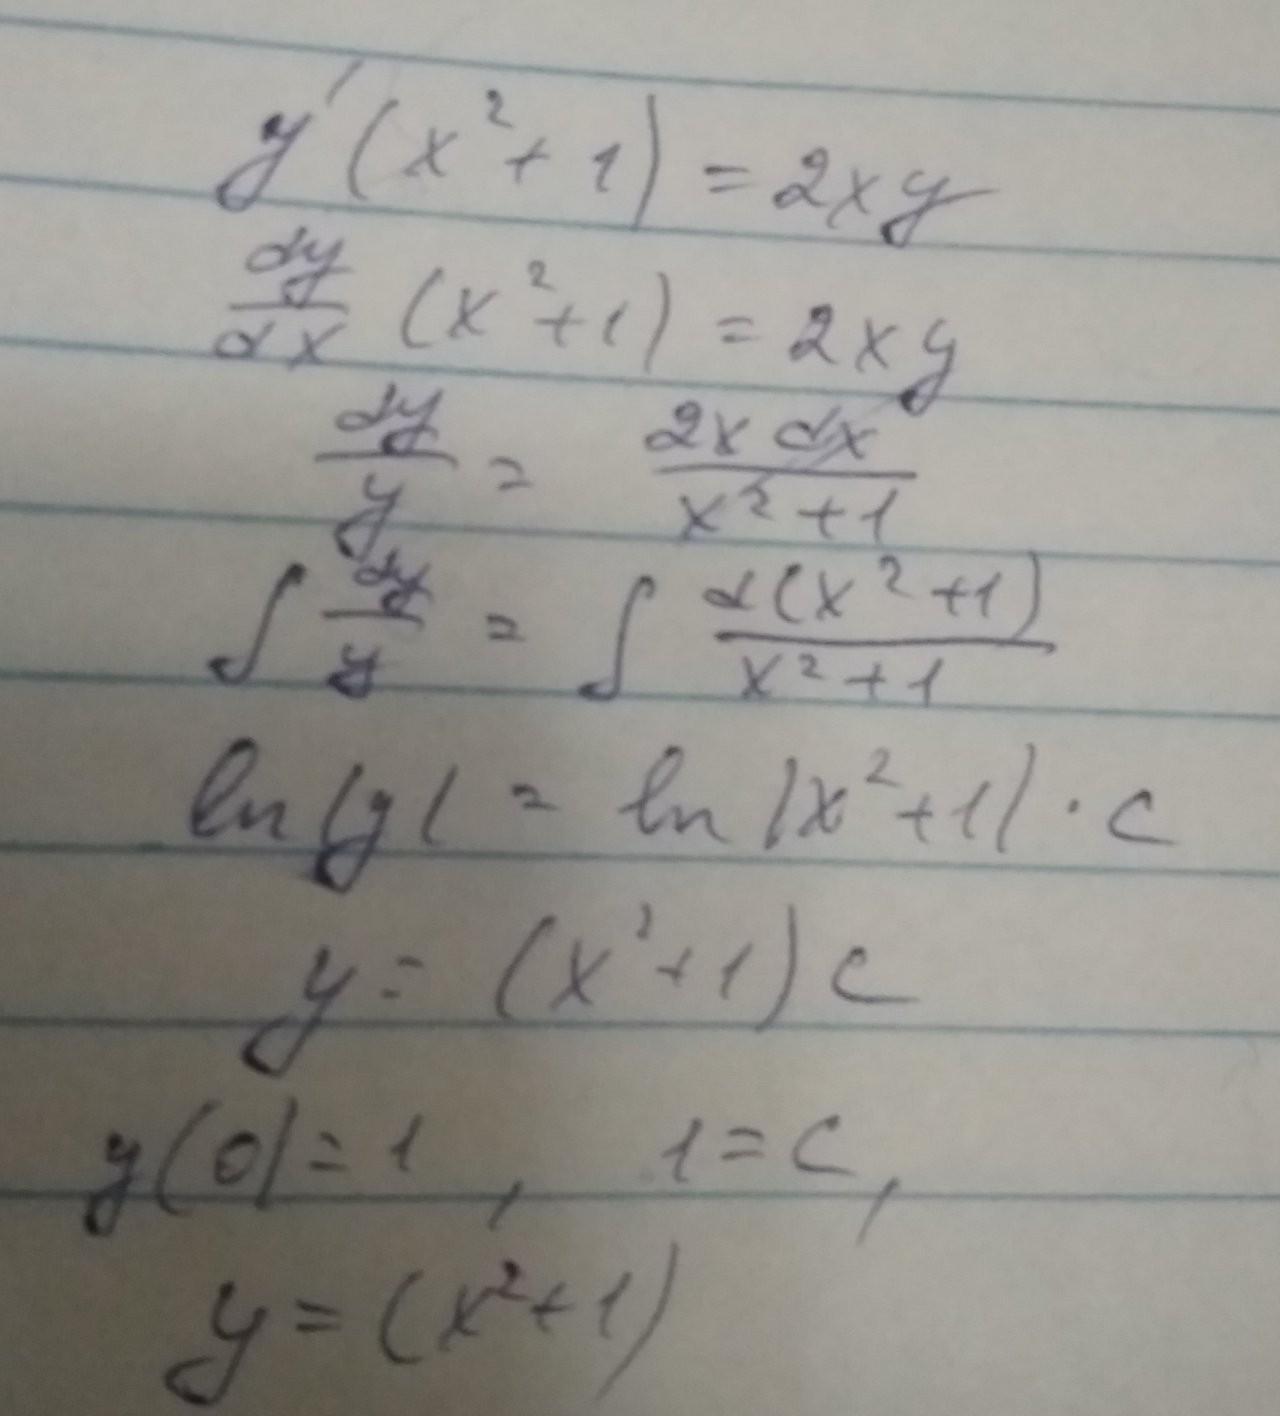 y'(x²+1) = 2xy
dy/dx (x²+1) = 2xy
dy/y = 2x dx/x²+1
∫ dy/y = ∫ d(x²+1)/x²+1
ln|y| = ln|x²+1| · c
y = (x²+1) c
y(0) = 1 , 1 = c ,
y = (x²+1)